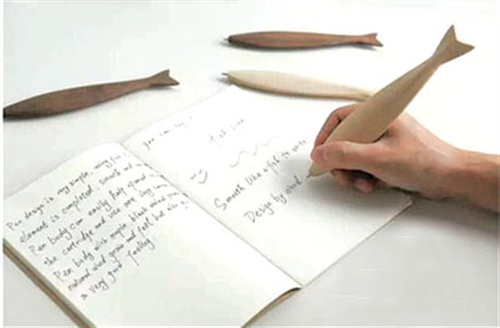 Pen design is very simple, using
element is completed. smooth and
Pen body can easily
the cartridge and use one
Pen body with maple, black walnut
natural wood grain and feel, but also
a very good feeling
you can say
Fish pen
Smooth like a fish to write
Design by wood